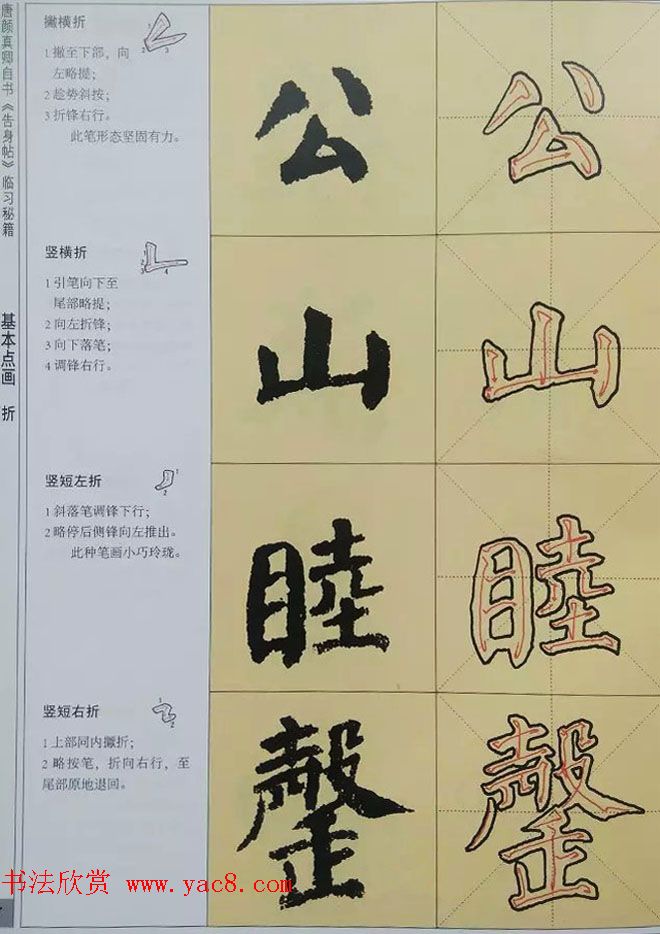 唐颜真卿自书《告身帖》临习秘籍
基本点画 折
撇横折
1 撇至下部，向
左略提；
2 趁势斜按；
3 折锋右行。
此笔形态坚固有力。
公 公
竖横折
1 引笔向下至
尾部略提；
2 向左折锋；
3 向下落笔；
4 调锋右行。
山 山
竖短左折
1 斜落笔调锋下行；
2 略停后侧锋向左推出。
此种笔画小巧玲珑。
睦 睦
竖短右折
1 上部同内撇折；
2 略按笔，折向右行，至
尾部原地退回。
书法欣赏 www.yac8.com